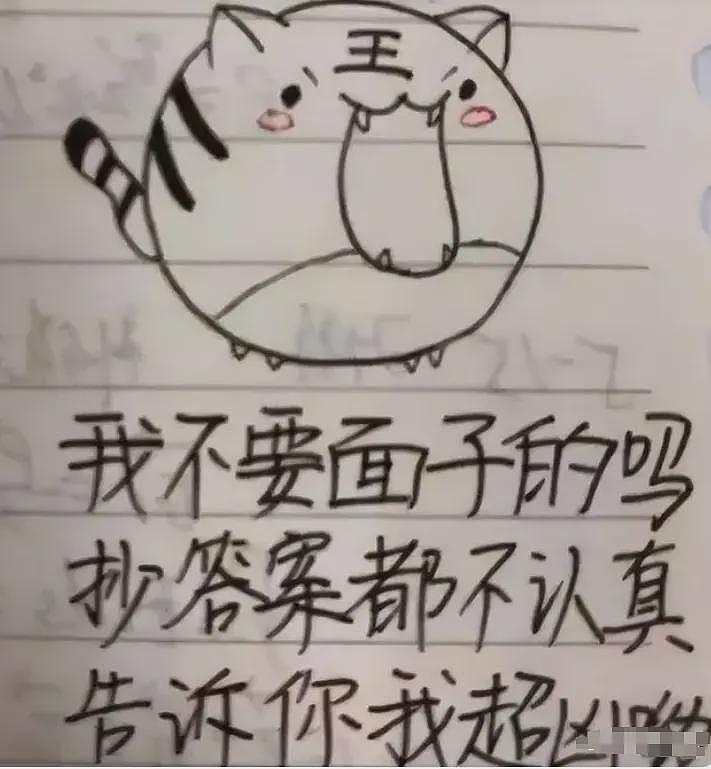 王
我不要面子的吗
抄答案都不认真
告诉你我超凶呦